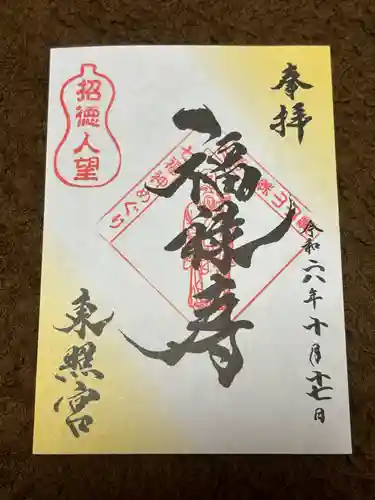 奉拝
福禄寿
令和六年十月十七日
招徳人望
七福神めぐり
東照宮